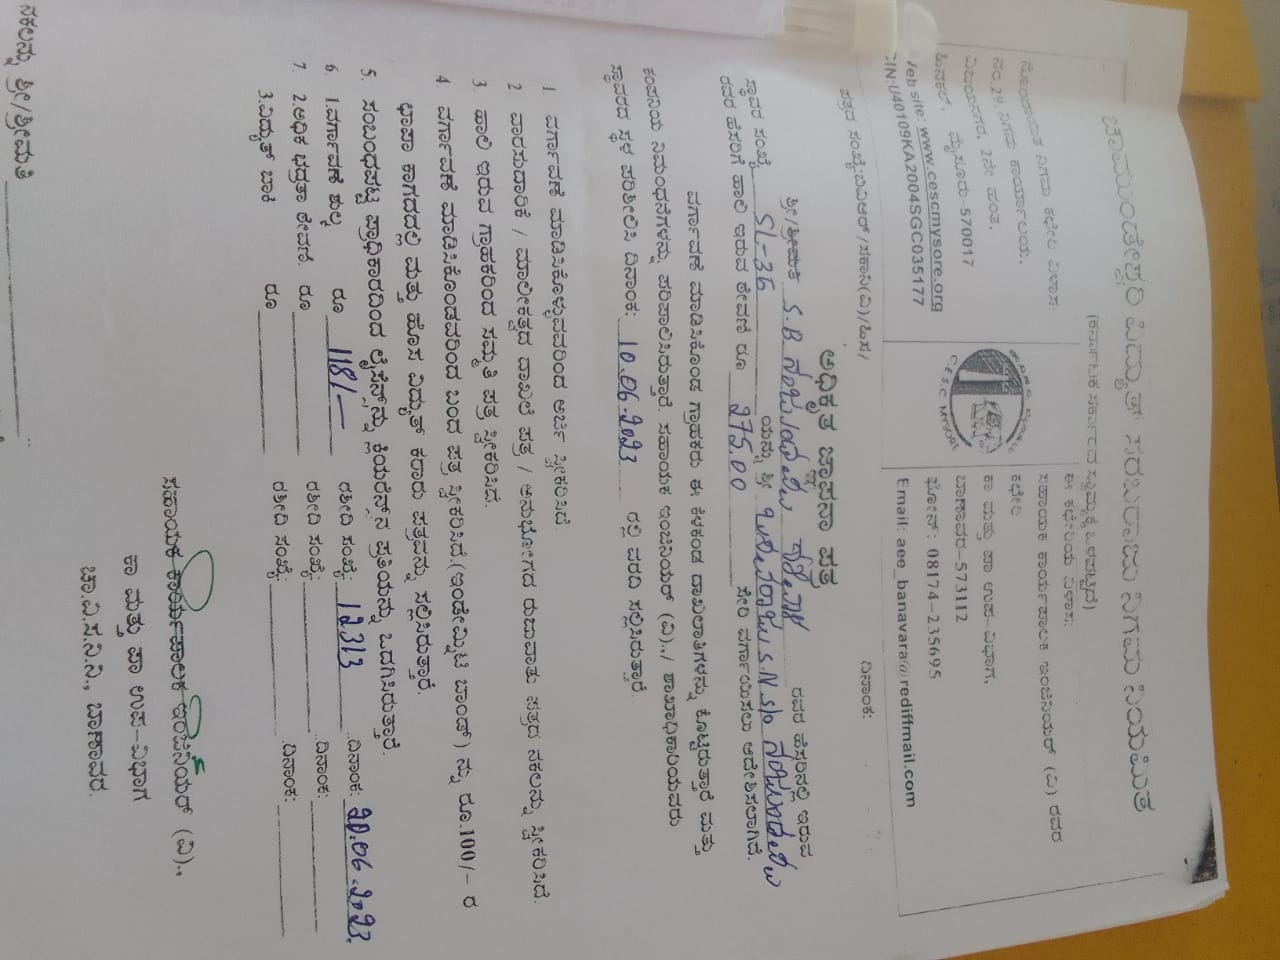 ಚಾಮುಂಡೇಶ್ವರಿ ವಿದ್ಯುತ್ ಸರಬರಾಜು ನಿಗಮ ನಿಯಮಿತ
(ಕರ್ನಾಟಕ ಸರ್ಕಾರದ ಸ್ವಾಮ್ಯಕ್ಕೆ ಒಳಪಟ್ಟಿದೆ)
ನೋಂದಾಯಿತ ನಿಗಮ ಕಛೇರಿ ವಿಳಾಸ:
ನಂ.29, ನಿಗಮ ಕಾರ್ಯಾಲಯ,
ವಿಜಯನಗರ, 2ನೇ ಹಂತ,
ಹಿನಕಲ್, ಮೈಸೂರು-570017
Web site: www.cescmysore.org
CIN:U40109KA2004SGC035177
C.E.S.C MYSORE
ಈ ಕಛೇರಿಯ ವಿಳಾಸ:
ಸಹಾಯಕ ಕಾರ್ಯಪಾಲಕ ಇಂಜಿನಿಯರ್ (ವಿ) ರವರ
ಕಛೇರಿ
ಕಾ ಮತ್ತು ಪಾ ಉಪ-ವಿಭಾಗ,
ಬಾಣಾವರ-573112
ಫೋನ್: 08174-235695
Email: aee_banavara@rediffmail.com
ಪತ್ರದ ಸಂಖ್ಯೆ: ದಿನಾಂಕ:
ಅಧಿಕೃತ ಜ್ಞಾಪನಾ ಪತ್ರ
ಶ್ರೀ/ಶ್ರೀಮತಿ S.B ರವರ ಹೆಸರಿನಲ್ಲಿ ಇರುವ
ಸ್ಥಾವರ ಸಂಖ್ಯೆ SL-36 ಯನ್ನು ಶ್ರೀ S.N S/o
ರವರ ಹೆಸರಿಗೆ ಹಾಲಿ ಇರುವ ಠೇವಣಿ ರೂ 275.00 ಸೇರಿ ವರ್ಗಾಯಿಸಲು ಆದೇಶಿಸಲಾಗಿದೆ.
ವರ್ಗಾವಣೆ ಮಾಡಿಸಿಕೊಂಡ ಗ್ರಾಹಕರು ಈ ಕೆಳಕಂಡ ದಾಖಲಾತಿಗಳನ್ನು ಕೊಟ್ಟಿರುತ್ತಾರೆ ಮತ್ತು
ಕಂಪನಿಯ ನಿಬಂಧನೆಗಳನ್ನು ಪರಿಪಾಲಿಸಿರುತ್ತಾರೆ. ಸಹಾಯಕ ಇಂಜಿನಿಯರ್ (ವಿ)../ ಶಾಖಾಧಿಕಾರಿಯವರು
ಸ್ಥಾವರದ ಸ್ಥಳ ಪರಿಶೀಲಿಸಿ ದಿನಾಂಕ: 10.06.2023 ರಲ್ಲಿ ವರದಿ ಸಲ್ಲಿಸಿರುತ್ತಾರೆ.
1 ವರ್ಗಾವಣೆ ಮಾಡಿಸಿಕೊಳ್ಳುವವರಿಂದ ಅರ್ಜಿ ಸ್ವೀಕರಿಸಿದೆ
2 ವಾರಸುದಾರಿಕೆ / ಮಾಲೀಕತ್ವದ ದಾಖಲೆ ಪತ್ರ / ಅನುಭೋಗದ ರುಜುವಾತು ಪತ್ರದ ನಕಲನ್ನು ಸ್ವೀಕರಿಸಿದೆ.
3 ಹಾಲಿ ಇರುವ ಗ್ರಾಹಕರಿಂದ ಸಮ್ಮತಿ ಪತ್ರ ಸ್ವೀಕರಿಸಿದೆ.
4 ವರ್ಗಾವಣೆ ಮಾಡಿಸಿಕೊಂಡವರಿಂದ ಬಂದ ಪತ್ರ ಸ್ವೀಕರಿಸಿದೆ.(ಇಂಡೇಮ್ನಿಟಿ ಬಾಂಡ್) ನ್ನು ರೂ.100/- ರ
ಛಾಪಾ ಕಾಗದದಲ್ಲಿ ಮತ್ತು ಹೊಸ ವಿದ್ಯುತ್ ಕರಾರು ಪತ್ರವನ್ನು ಸಲ್ಲಿಸಿರುತ್ತಾರೆ.
5. ಸಂಬಂಧಪಟ್ಟ ಪ್ರಾಧಿಕಾರದಿಂದ ಲೈಸೆನ್ಸ್‌ನ್ನು ಕ್ಲಿಯರೆನ್ಸ್‌ನ ಪ್ರತಿಯನ್ನು ಒದಗಿಸಿರುತ್ತಾರೆ.
6. 1.ವರ್ಗಾವಣೆ ಶುಲ್ಕ ರೂ 118/- ರಶೀದಿ ಸಂಖ್ಯೆ: 12313 ದಿನಾಂಕ: 20.06.2023.
7. 2.ಅಧಿಕ ಭದ್ರತಾ ಠೇವಣಿ. ರೂ ರಶೀದಿ ಸಂಖ್ಯೆ: ದಿನಾಂಕ:
3.ವಿದ್ಯುತ್ ಬಾಕಿ ರೂ ರಶೀದಿ ಸಂಖ್ಯೆ: ದಿನಾಂಕ:
ಸಹಾಯಕ ಕಾರ್ಯಪಾಲಕ ಇಂಜಿನಿಯರ್ (ವಿ).,
ಕಾ ಮತ್ತು ಪಾ ಉಪ-ವಿಭಾಗ
ಚಾ.ವಿ.ಸ.ನಿ.ನಿ., ಬಾಣಾವರ.
ನಕಲನ್ನು ಶ್ರೀ/ಶ್ರೀಮತಿ